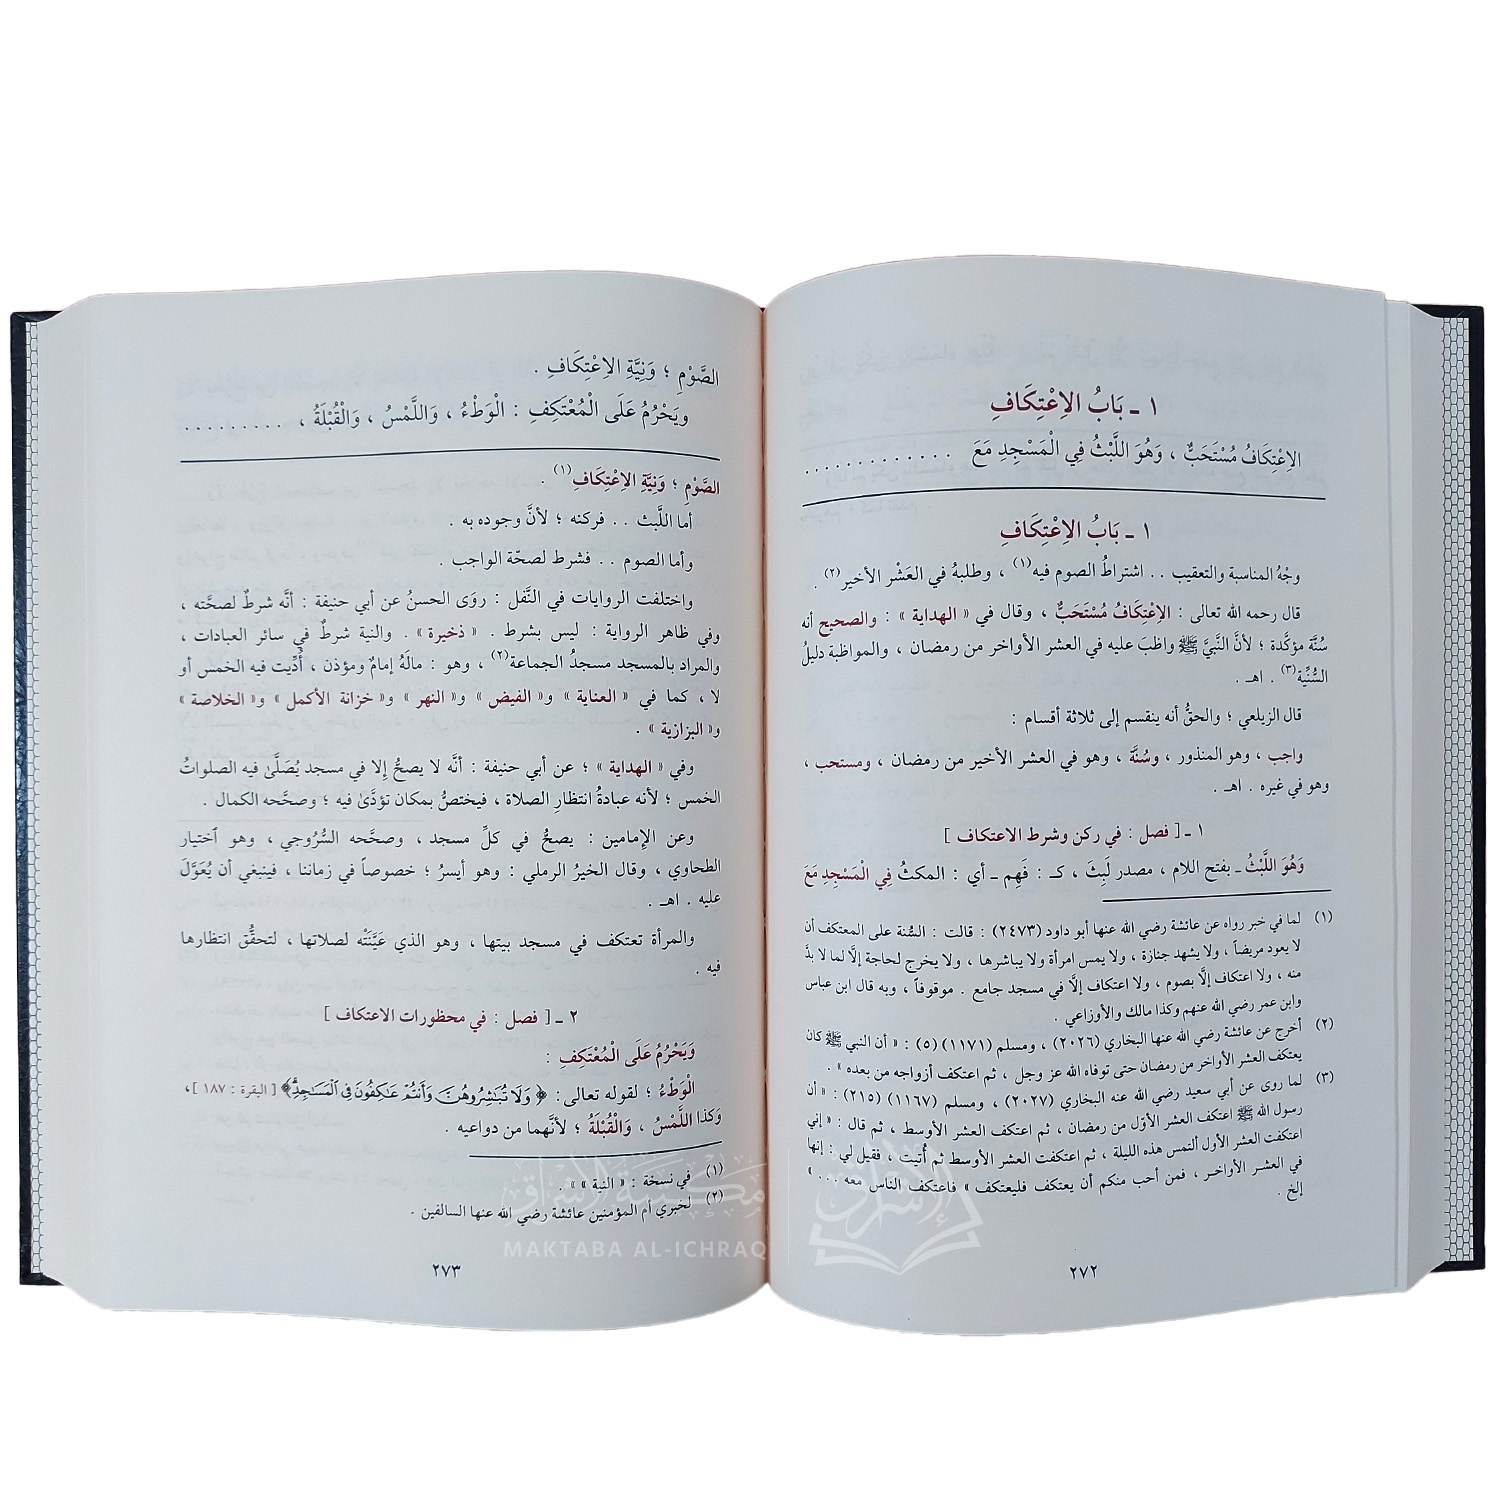 ١ ـ بَابُ الِاعْتِكَافِ
الِاعْتِكَافُ مُسْتَحَبٌّ ، وَهُوَ اللَّبْثُ فِي الْمَسْجِدِ مَعَ . . . . . . . . . . . . .
١ ـ بَابُ الِاعْتِكَافِ
وجْهُ المناسبة والتعقيب . . اشتراطُ الصوم فيه(١) ، وطلبهُ في العَشْر الأخير(٢) .
قال رحمه الله تعالى : الِاعْتِكَافُ مُسْتَحَبٌّ ، وقال في « الهداية » : والصحيح أنه
سُنَّة مؤكَّدة ؛ لأنَّ النَّبيَّ ﷺ واظبَ عليه في العشر الأواخر من رمضان ، والمواظبة دليلُ
السُّنِّية(٣) . اهـ .
قال الزيلعي ؛ والحقُّ أنه ينقسم إلى ثلاثة أقسام :
واجب ، وهو المنذور ، وسُنَّة ، وهو في العشر الأخير من رمضان ، ومستحب ،
وهو في غيره . اهـ .
١ ـ [ فصل : في ركن وشرط الاعتكاف ]
وَهُوَ اللَّبْثُ ـ بفتح اللام ، مصدر لَبِثَ ، كـ : فَهِم ـ أي : المكثُ فِي الْمَسْجِدِ مَعَ
(١) لما في خبر رواه عن عائشة رضي الله عنها أبو داود (٢٤٧٣) : قالت : السُّنة على المعتكف أن
لا يعود مريضاً ، ولا يشهد جنازة ، ولا يمس امرأة ولا يباشرها ، ولا يخرج لحاجة إلَّا لما لا بدَّ
منه ، ولا اعتكاف إلَّا بصوم ، ولا اعتكاف إلَّا في مسجد جامع . موقوفاً ، وبه قال ابن عباس
وابن عمر رضي الله عنهم وكذا مالك والأوزاعي .
(٢) أخرج عن عائشة رضي الله عنها البخاري (٢٠٢٦) ، ومسلم (١١٧١) (٥) : « أن النبي ﷺ كان
يعتكف العشر الأواخر من رمضان حتى توفاه الله عز وجل ، ثم اعتكف أزواجه من بعده » .
(٣) لما روى عن أبي سعيد رضي الله عنه البخاري (٢٠٢٧) ، ومسلم (١١٦٧) (٢١٥) : « أن
رسول الله ﷺ اعتكف العشر الأوّل من رمضان ، ثم اعتكف العشر الأوسط ، ثم قال : « إني
اعتكفت العشر الأول ألتمس هذه الليلة ، ثم اعتكفت العشر الأوسط ثم أُتيت ، فقيل لي : إنها
في العشر الأواخر ، فمن أحب منكم أن يعتكف فليعتكف » فاعتكف الناس معه . . . »
إلخ .
٢٧٢
الصَّوْمِ ؛ وَنِيَّةِ الِاعْتِكَافِ .
وَيَحْرُمُ عَلَى الْمُعْتَكِفِ : الْوَطْءُ ، وَاللَّمْسُ ، وَالْقُبْلَةُ ، . . . . . . . . .
الصَّوْمِ ؛ وَنِيَّةِ الِاعْتِكَافِ(١) .
أما اللَّبث . . فركنه ؛ لأنَّ وجوده به .
وأما الصوم . . فشرط لصحّة الواجب .
واختلفت الروايات في النَّفل : روَى الحسنُ عن أبي حنيفة : أنَّه شرطٌ لصحَّته ،
وفي ظاهر الرواية : ليس بشرط . « ذخيرة » . والنية شرطٌ في سائر العبادات ،
والمراد بالمسجد مسجدُ الجماعة(٢) ، وهو : مالَهُ إمامٌ ومؤذن ، أُدِّيت فيه الخمس أو
لا ، كما في « العناية » و« الفيض » و« النهر » و« خزانة الأكمل » و« الخلاصة »
و« البزازية » .
وفي « الهداية » ؛ عن أبي حنيفة : أنَّه لا يصحُّ إلا في مسجد يُصَلَّىٰ فيه الصلواتُ
الخمس ؛ لأنه عبادةُ انتظارِ الصلاة ، فيختصُّ بمكان تؤدَّىٰ فيه ؛ وصحَّحه الكمال .
وعن الإمامين : يصحُّ في كلِّ مسجد ، وصحَّحه السُّرُوجي ، وهو ٱختيار
الطحاوي ، وقال الخيرُ الرملي : وهو أيسرُ ؛ خصوصاً في زماننا ، فينبغي أن يُعَوَّلَ
عليه . اهـ .
والمرأة تعتكف في مسجد بيتها ، وهو الذي عَيَّنَتْه لصلاتها ، لتحقُّق انتظارها
فيه .
٢ ـ [ فصل : في محظورات الاعتكاف ]
وَيَحْرُمُ عَلَى الْمُعْتَكِفِ :
الْوَطْءُ ؛ لقوله تعالى : ﴿ وَلَا تُبَاشِرُوهُنَّ وَأَنتُمْ عَاكِفُونَ فِي الْمَسَاجِدِ ﴾ [ البقرة : ١٨٧ ] ،
وَكذا اللَّمْسُ ، وَالْقُبْلَةُ ؛ لأنَّهما من دواعيه .
(١) في نسخة : « النية » .
(٢) لخبري أم المؤمنين عائشة رضي الله عنها السالفين .
٢٧٣
مكتبة الإشراق
MAKTABA AL-ICHRAQ
الإشراق